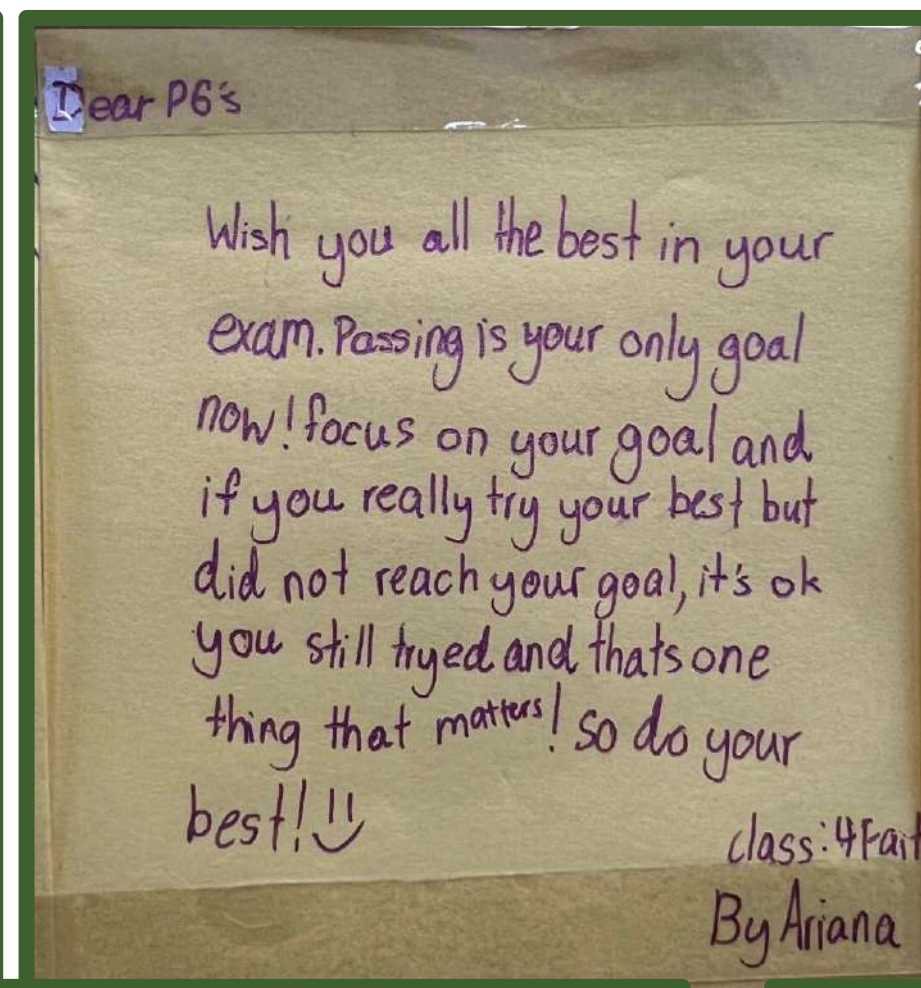 Dear P6's
Wish you all the best in your
exam. Passing is your only goal
now! focus on your goal and
if you really try your best but
did not reach your goal, it's ok
you still tryed and thats one
thing that matters! so do your
best!
class: 4 Fait
By Ariana